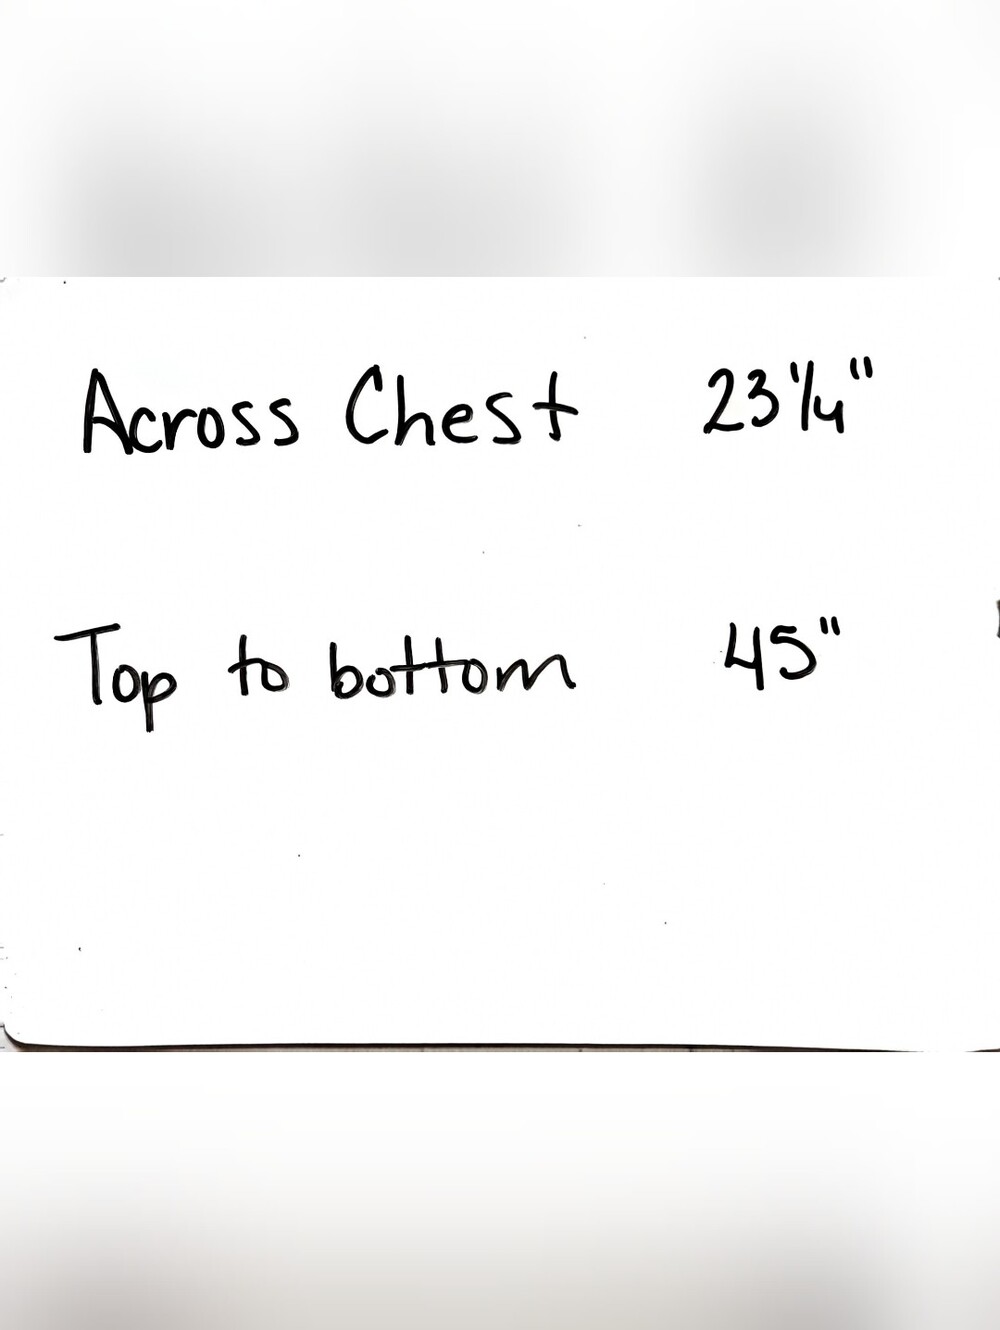 Across Chest 23 1/4"
Top to bottom 45"